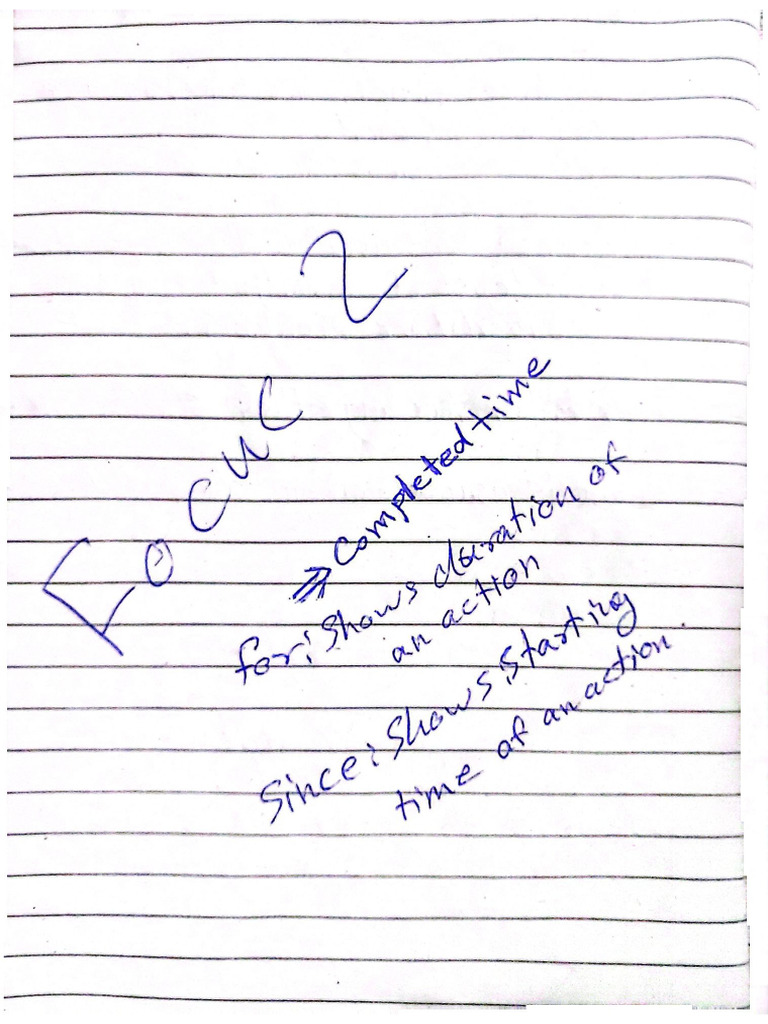 Focuc 2
⇒ Completed time
for: Shows duration of
an action
Since: Shows starting
time of an action.